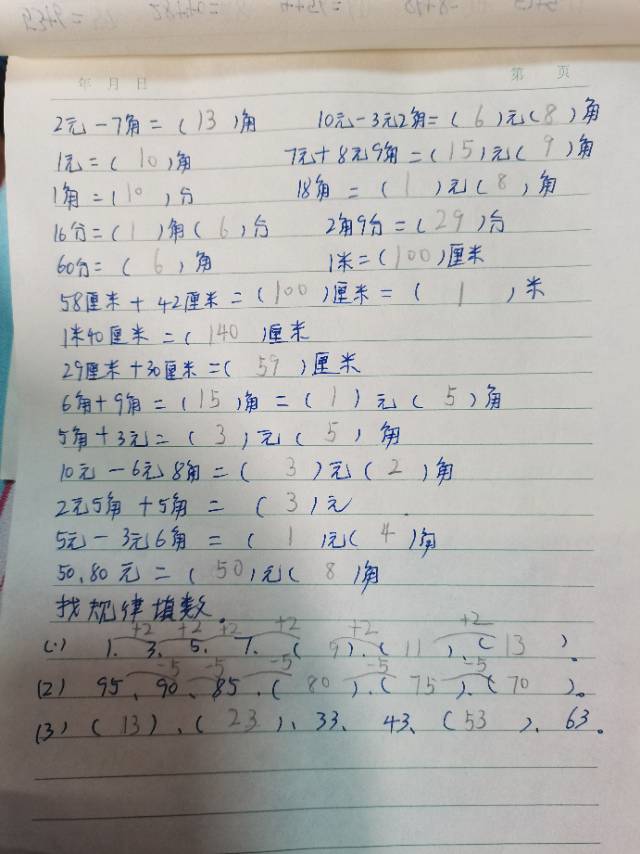 年 月 日 第 页
2元-7角=(13)角 10元-3元2角=(6)元(8)角
1元=(10)角 7元+8元9角=(15)元(9)角
1角=(10)分 18角=(1)元(8)角
16分=(1)角(6)分 2角9分=(29)分
60分=(6)角 1米=(100)厘米
58厘米+42厘米=(100)厘米=(1)米
1米40厘米=(140)厘米
29厘米+30厘米=(59)厘米
6角+9角=(15)角=(1)元(5)角
5角+3元=(3)元(5)角
10元-6元8角=(3)元(2)角
2元5角+5角=(3)元
5元-3元6角=(1)元(4)角
50.80元=(50)元(8)角
找规律填数。
+2 +2 +2 +2 +2
(1) 1、3、5、7、(9)、(11)、(13)。
-5 -5 -5 -5 -5
(2) 95、90、85、(80)、(75)、(70)。
(3) (13)、(23)、33、43、(53)、63。